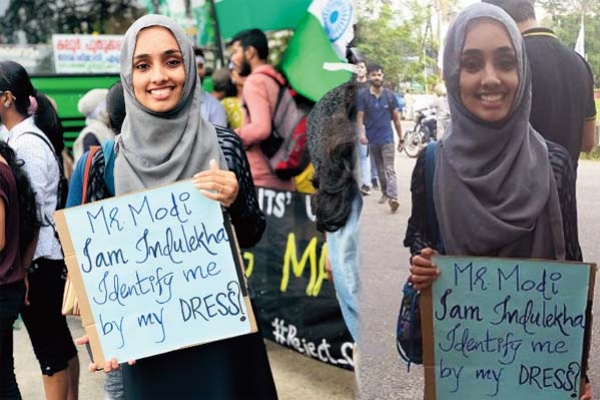 MR. Modi
Iam Indulekha
Identify me
by my DRESS?
#Reject_
MR. Modi
Iam Indulekha
Identify me
by my DRESS?